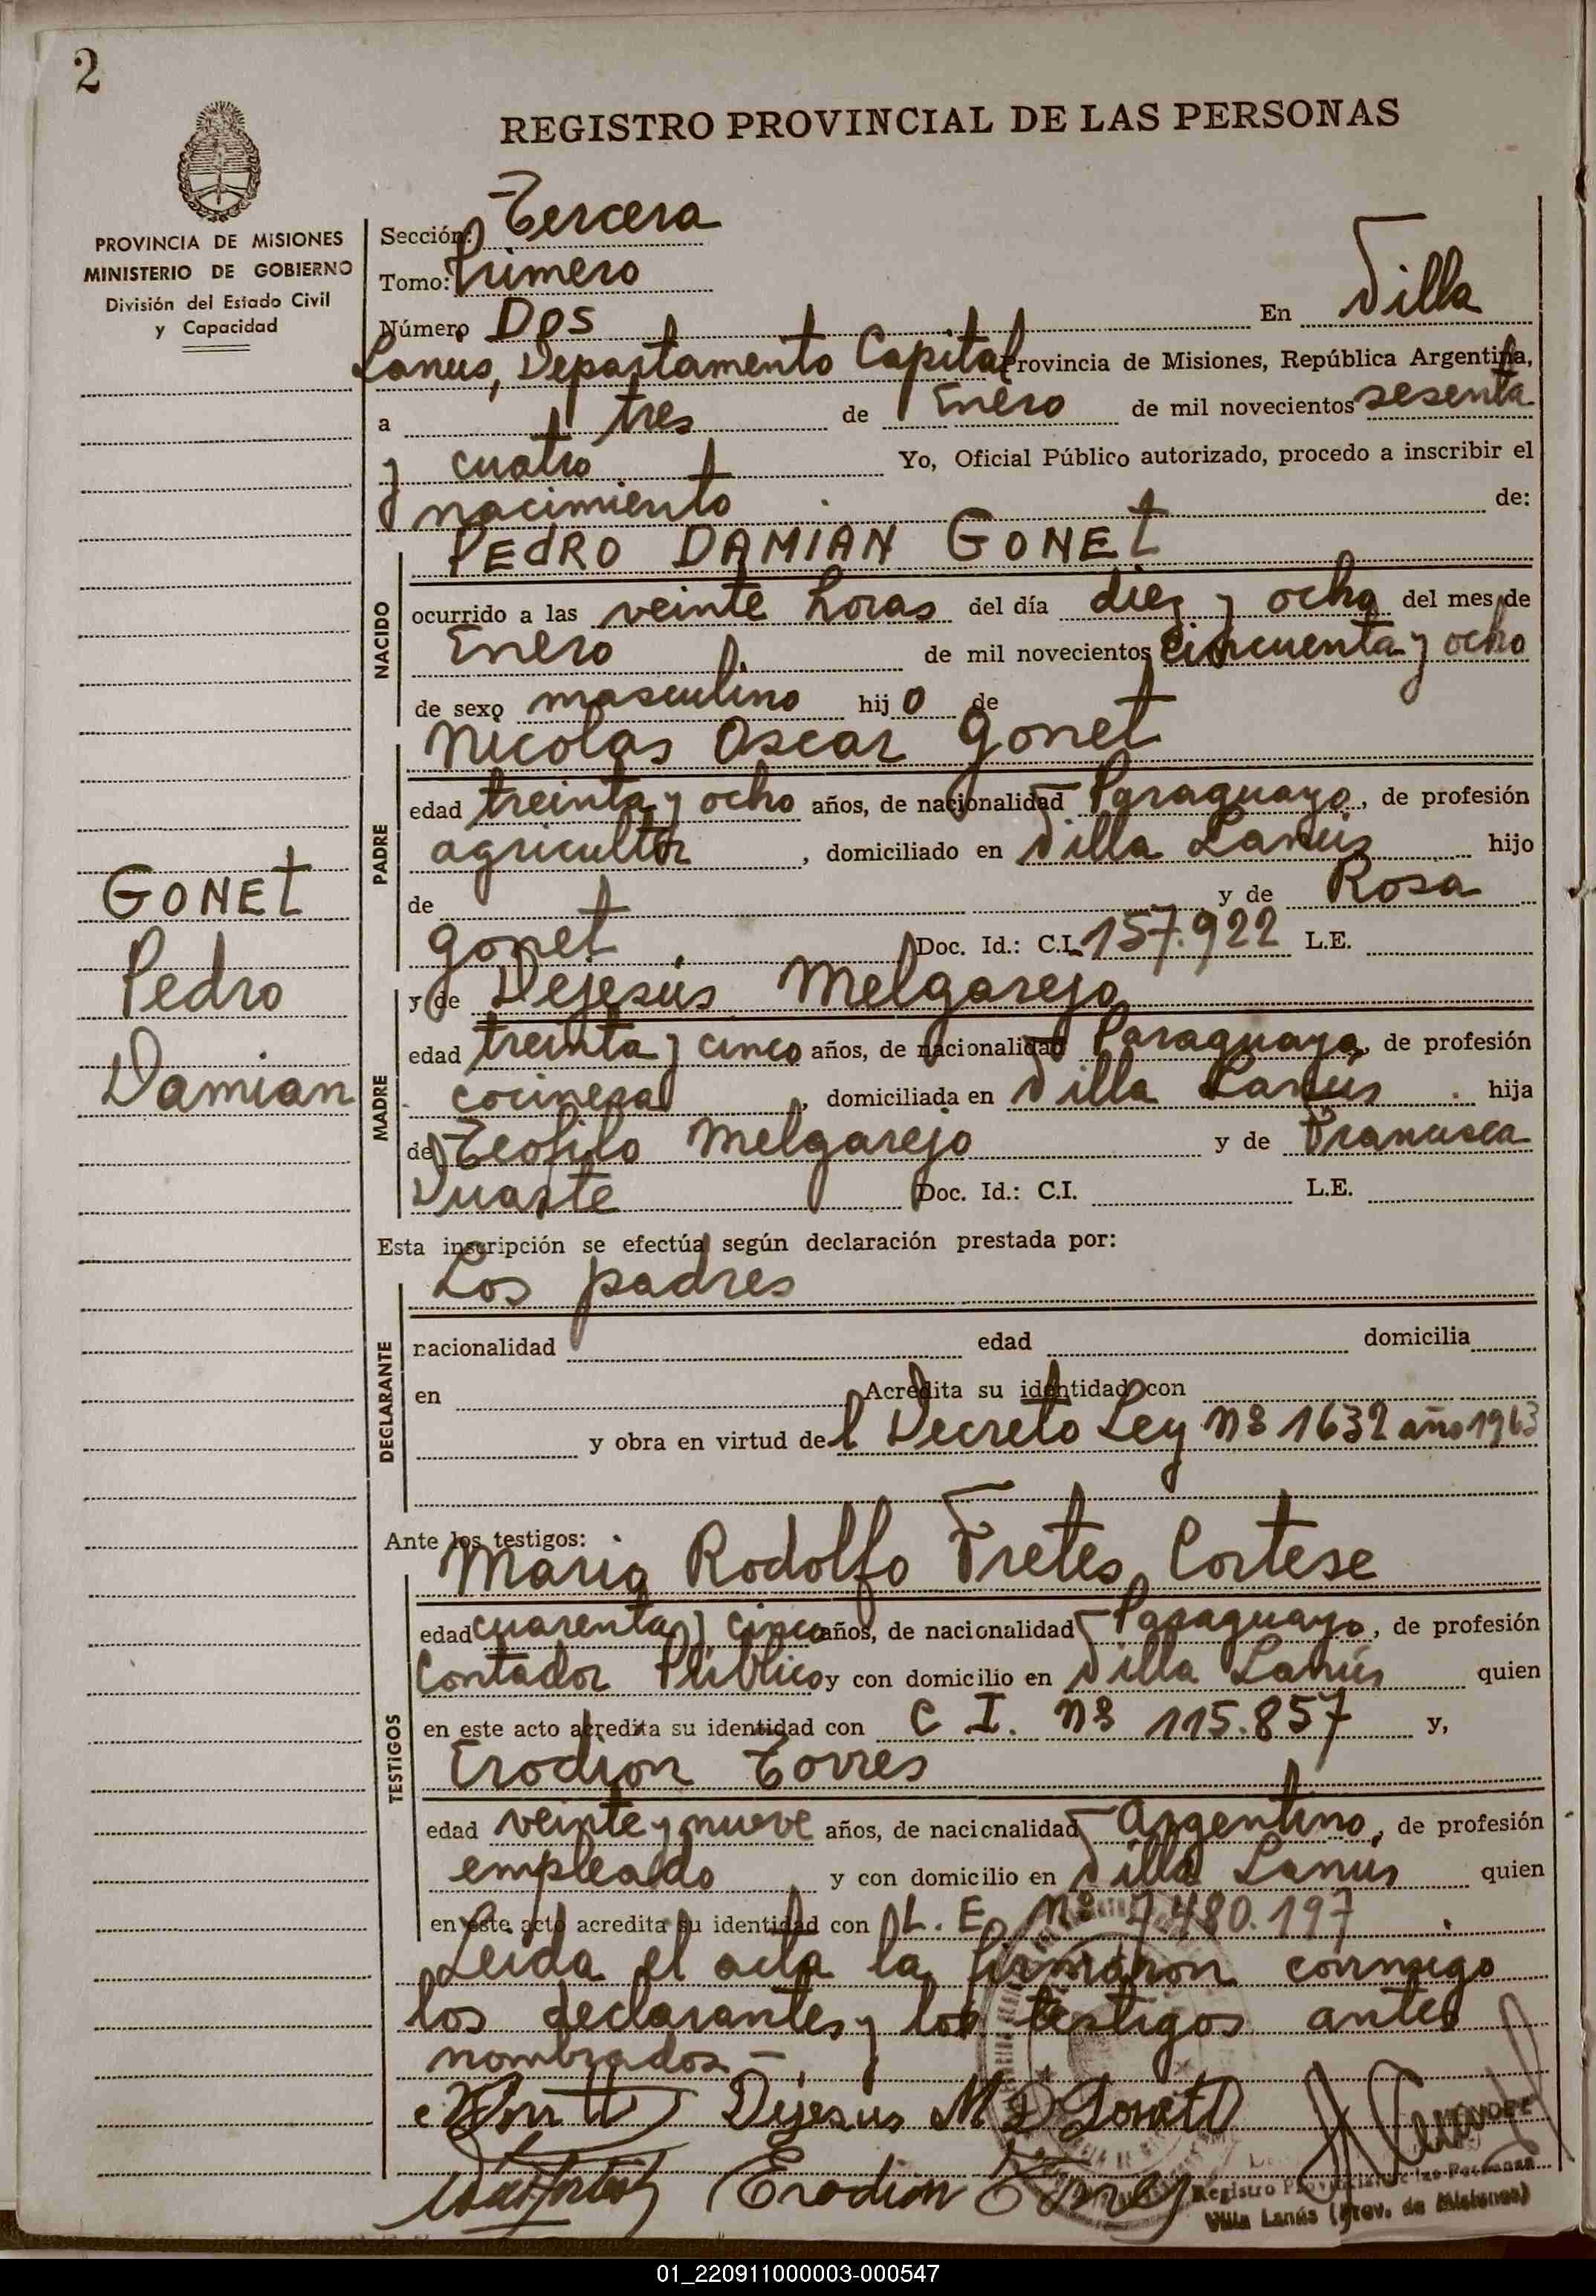 2
REGISTRO PROVINCIAL DE LAS PERSONAS
PROVINCIA DE MISIONES
MINISTERIO DE GOBIERNO
División del Estado Civil
y Capacidad
Sección: Tercera
Tomo: Primero
Número Dos En Villa
Lanus, Departamento Capital Provincia de Misiones, República Argentina,
a tres de Enero de mil novecientos sesenta
y cuatro Yo, Oficial Público autorizado, procedo a inscribir el
nacimiento de:
PEdRO DAMIAN GONEt
NACIDO
ocurrido a las veinte horas del día diez y ocho del mes de
Enero de mil novecientos cincuenta y ocho
de sexo masculino hijo de
Nicolas Oscar Gonet
PADRE
edad treinta y ocho años, de nacionalidad Paraguaya, de profesión
agricultor, domiciliado en Villa Lanús hijo
de y de Rosa
Gonet Doc. Id.: C.I. 157.922 L.E.
y de Dejesús Melgarejo
MADRE
edad treinta y cinco años, de nacionalidad Paraguaya, de profesión
cocinera, domiciliada en Villa Lanús hija
de Teofilo Melgarejo y de Francisca
Duarte Doc. Id.: C.I. L.E.
GONEt
Pedro
Damian
Esta inscripción se efectúa según declaración prestada por:
Los padres
DECLARANTE
nacionalidad edad domicilia
en Acredita su identidad con
y obra en virtud del Decreto Ley Nº 1632 año 1963
Ante los testigos:
Mario Rodolfo Fretes Cortese
TESTIGOS
edad cuarenta y cinco años, de nacionalidad Paraguayo, de profesión
Contador Público y con domicilio en Villa Lanús quien
en este acto acredita su identidad con C I. Nº 115.857 y,
Erodion Torres
edad veinte y nueve años, de nacionalidad Argentino, de profesión
empleado y con domicilio en Villa Lanús quien
en este acto acredita su identidad con L. E. Nº 7480.197
Leida el acta la firmaron conmigo
los declarantes y los testigos antes
nombrados.-
Dejesus M D Gonet
Erodion Torres
Registro Provincial de las Personas
Villa Lanús (Prov. de Misiones)
01_220911000003-000547